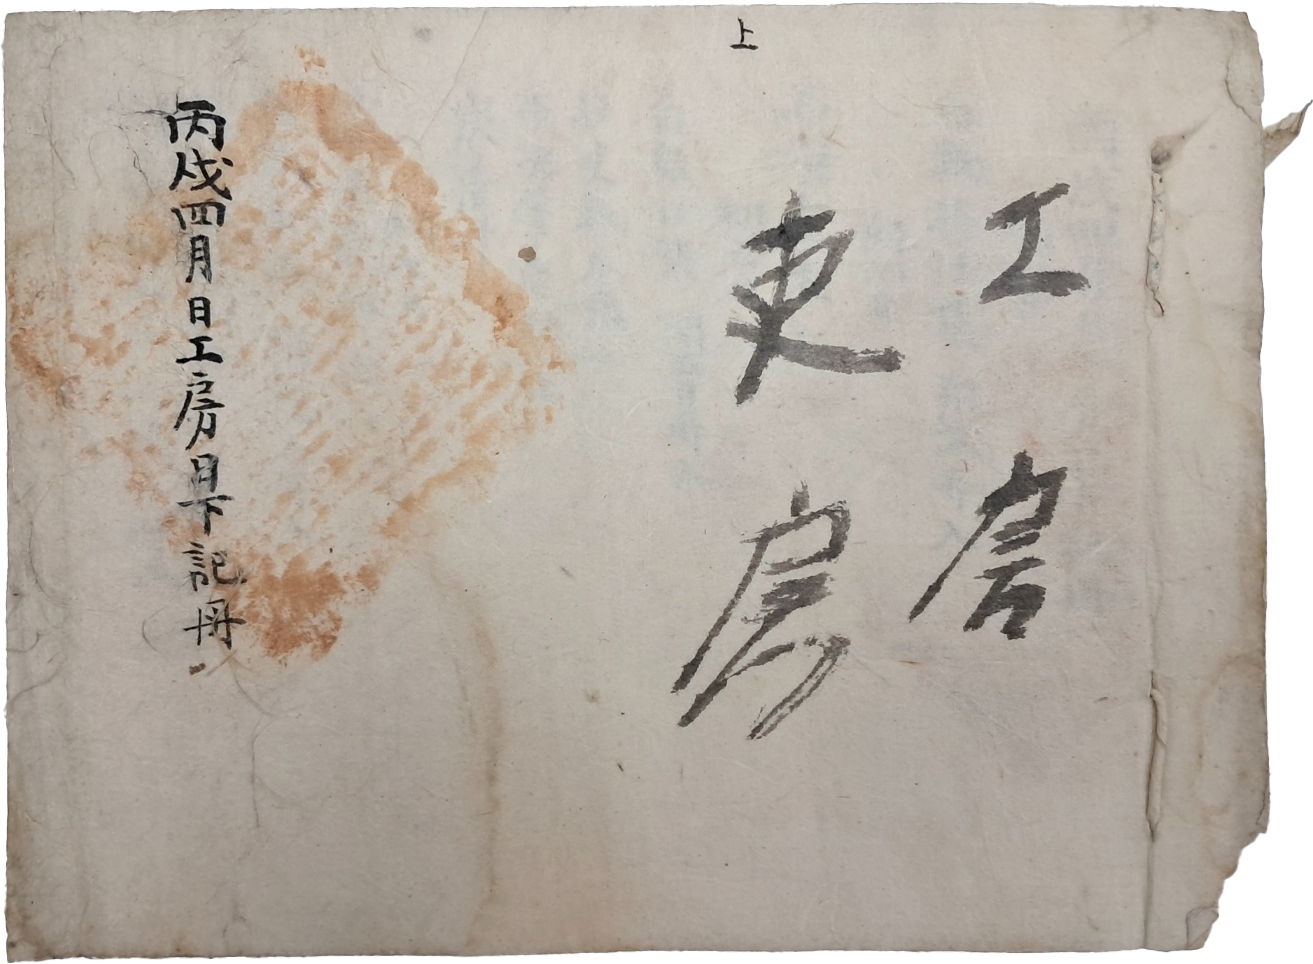 上
工房
吏房
丙戌四月日工房日下記冊